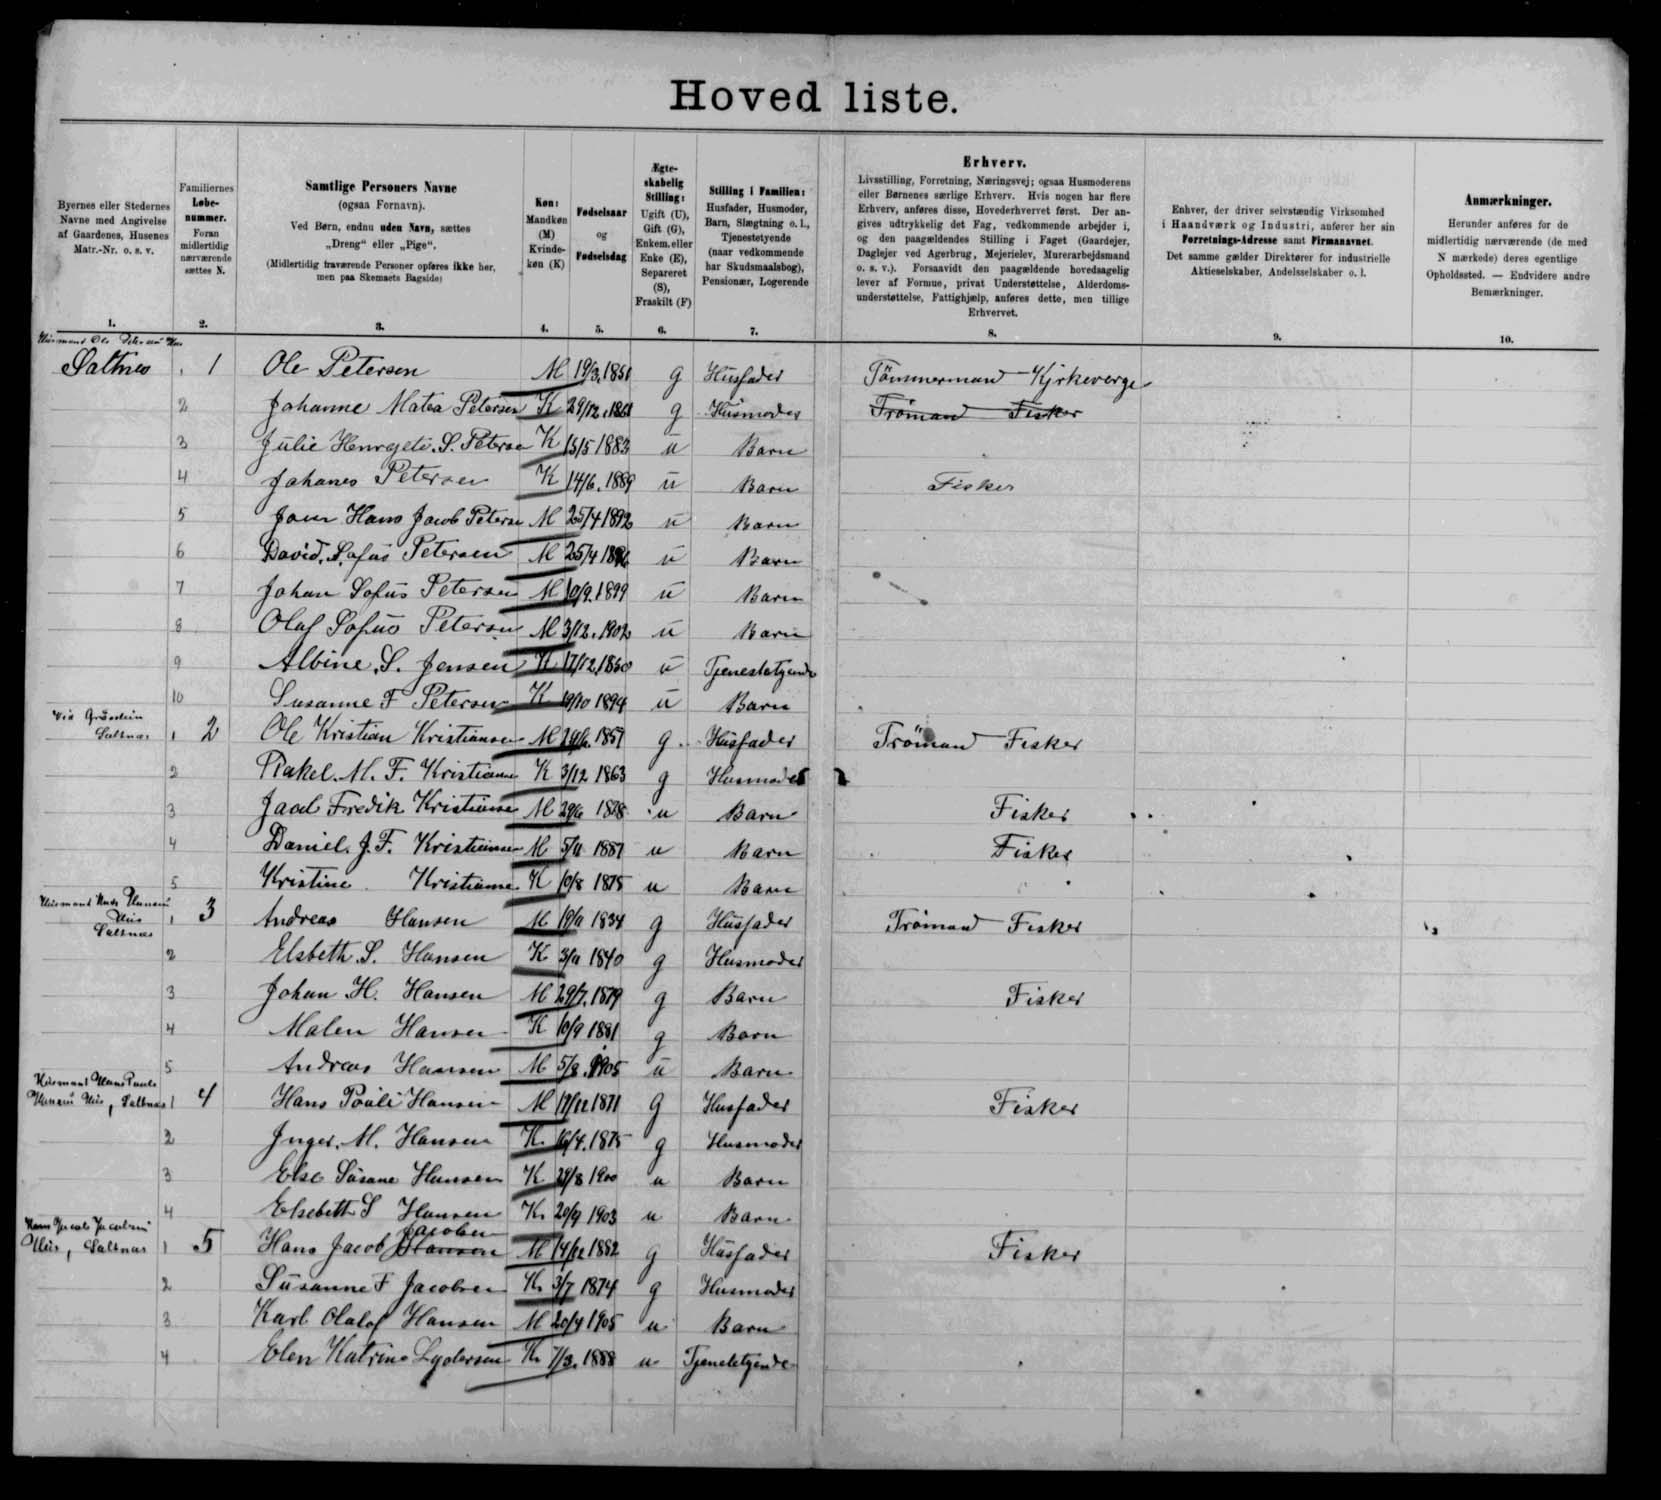 Hoved liste.
Byernes eller Stedernes
Navne med Angivelse
af Gaardenes, Husenes
Matr.-Nr. o. s. v.
1.
Familiernes
Løbe-
nummer.
Foran
midlertidig
nærværende
sættes N.
2.
Samtlige Personers Navne
(ogsaa Fornavn).
Ved Børn, endnu uden Navn, sættes
„Dreng“ eller „Pige“.
(Midlertidig fraværende Personer opføres ikke her,
men paa Skemaets Bagside)
3.
Køn:
Mandkøn
(M)
Kvinde-
køn (K)
4.
Fødselsaar
og
Fødselsdag
5.
Ægte-
skabelig
Stilling:
Ugift (U),
Gift (G),
Enkem. eller
Enke (E),
Separeret
(S),
Fraskilt (F)
6.
Stilling i Familien:
Husfader, Husmoder,
Barn, Slægtning o. l.,
Tjenestetyende
(naar vedkommende
har Skudsmaalsbog),
Pensionær, Logerende
7.
Erhverv.
Livsstilling, Forretning, Næringsvej; ogsaa Husmoderens
eller Børnenes særlige Erhverv. Hvis nogen har flere
Erhverv, anføres disse, Hovederhvervet først. Der an-
gives udtrykkelig det Fag, vedkommende arbejder i,
og den paagældendes Stilling i Faget (Gaardejer,
Daglejer ved Agerbrug, Mejerielev, Murerarbejdsmand
o. s. v.). Forsaavidt den paagældende hovedsagelig
lever af Formue, privat Understøttelse, Alderdoms-
understøttelse, Fattighjælp, anføres dette, men tillige
Erhvervet.
8.
Enhver, der driver selvstændig Virksomhed
i Haandværk og Industri, anfører her sin
Forretnings-Adresse samt Firmanavnet.
Det samme gælder Direktører for industrielle
Aktieselskaber, Andelsselskaber o. l.
9.
Anmærkninger.
Herunder anføres for de
midlertidig nærværende (de med
N mærkede) deres egentlige
Opholdssted. — Endvidere andre
Bemærkninger.
10.
Husmand Ole Petersens Hus
Saltnes 1 Ole Petersen M 19/3. 1851 g Husfader Tömmermand Kjrkeverge
2 Johanne Matea Petersen K 29/12. g Husmoder Tröimand Fisker
3 Julie S. Peterse K 15/5 1883 u Barn
4 Johanes Petersen K 14/6. 1889 u Barn Fisker
5 Hans Jacob Peterse M 25/4 1892 u Barn
6 David. Sofus Petersen M 25/4 u Barn
7 Johan Sofus Petersen M 10/9. 1899 u Barn
8 Olaf Sofus Petersen M 3/12. 1902 u Barn
9 Albine. S. Jensen K 17/12. 1860 u Tjenestetyende
10 Susanne F Petersen K 19/10 1894 u Barn
Saltnæs 1 2 Ole Kristian Kristiansen M 1857 g. Husfader Tröimand Fisker
2 Rakel. M. F. Kristianse K 3/12 1863 g Husmoder
3 Fredik Kristianse M 29/6 u Barn Fisker
4 Daniel. J. F. Kristiansen M 5/11 1887 u Barn Fisker
5 Kristine Kristianse K 10/8 1875 u Barn
Husmand Hansens
Hus
Saltnæs
1 3 Andreas Hansen M 19/11 1834 g Husfader Tröimand Fisker
2 Elsbeth S. Hansen K 3/11 1840 g Husmoder
3 Johan H. Hansen M 29/7. 1879 g Barn Fisker
4 Malen Hansen K 10/9 1881 g Barn
5 Andreas Hansen M 5/8. 1905 u Barn
Husmand Hans Pauli
Hansens Hus, Saltnæs 1 4 Hans Pouli Hansen M 17/12 1871 g Husfader Fisker
2 Inger. M. Hansen K. 16/4. 1875 g Husmoder
3 Else Susane Hansen K 29/8 1900 u Barn
4 Elsebeth S Hansen K. 20/9 1903 u Barn
Hans Jacob Jacobsens
Jacobsen
Hus, Saltnæs 1 5 Hans Jacob Hansen M 14/12 1882 g Husfader Fisker
2 Susanne F Jacobsen K. 3/7 1874 g Husmoder
3 Karl Olalof Hansen M 20/4 1905 u Barn
4 Elen Katrine Lydersen K. 7/3. 1888 u Tjenestetyende